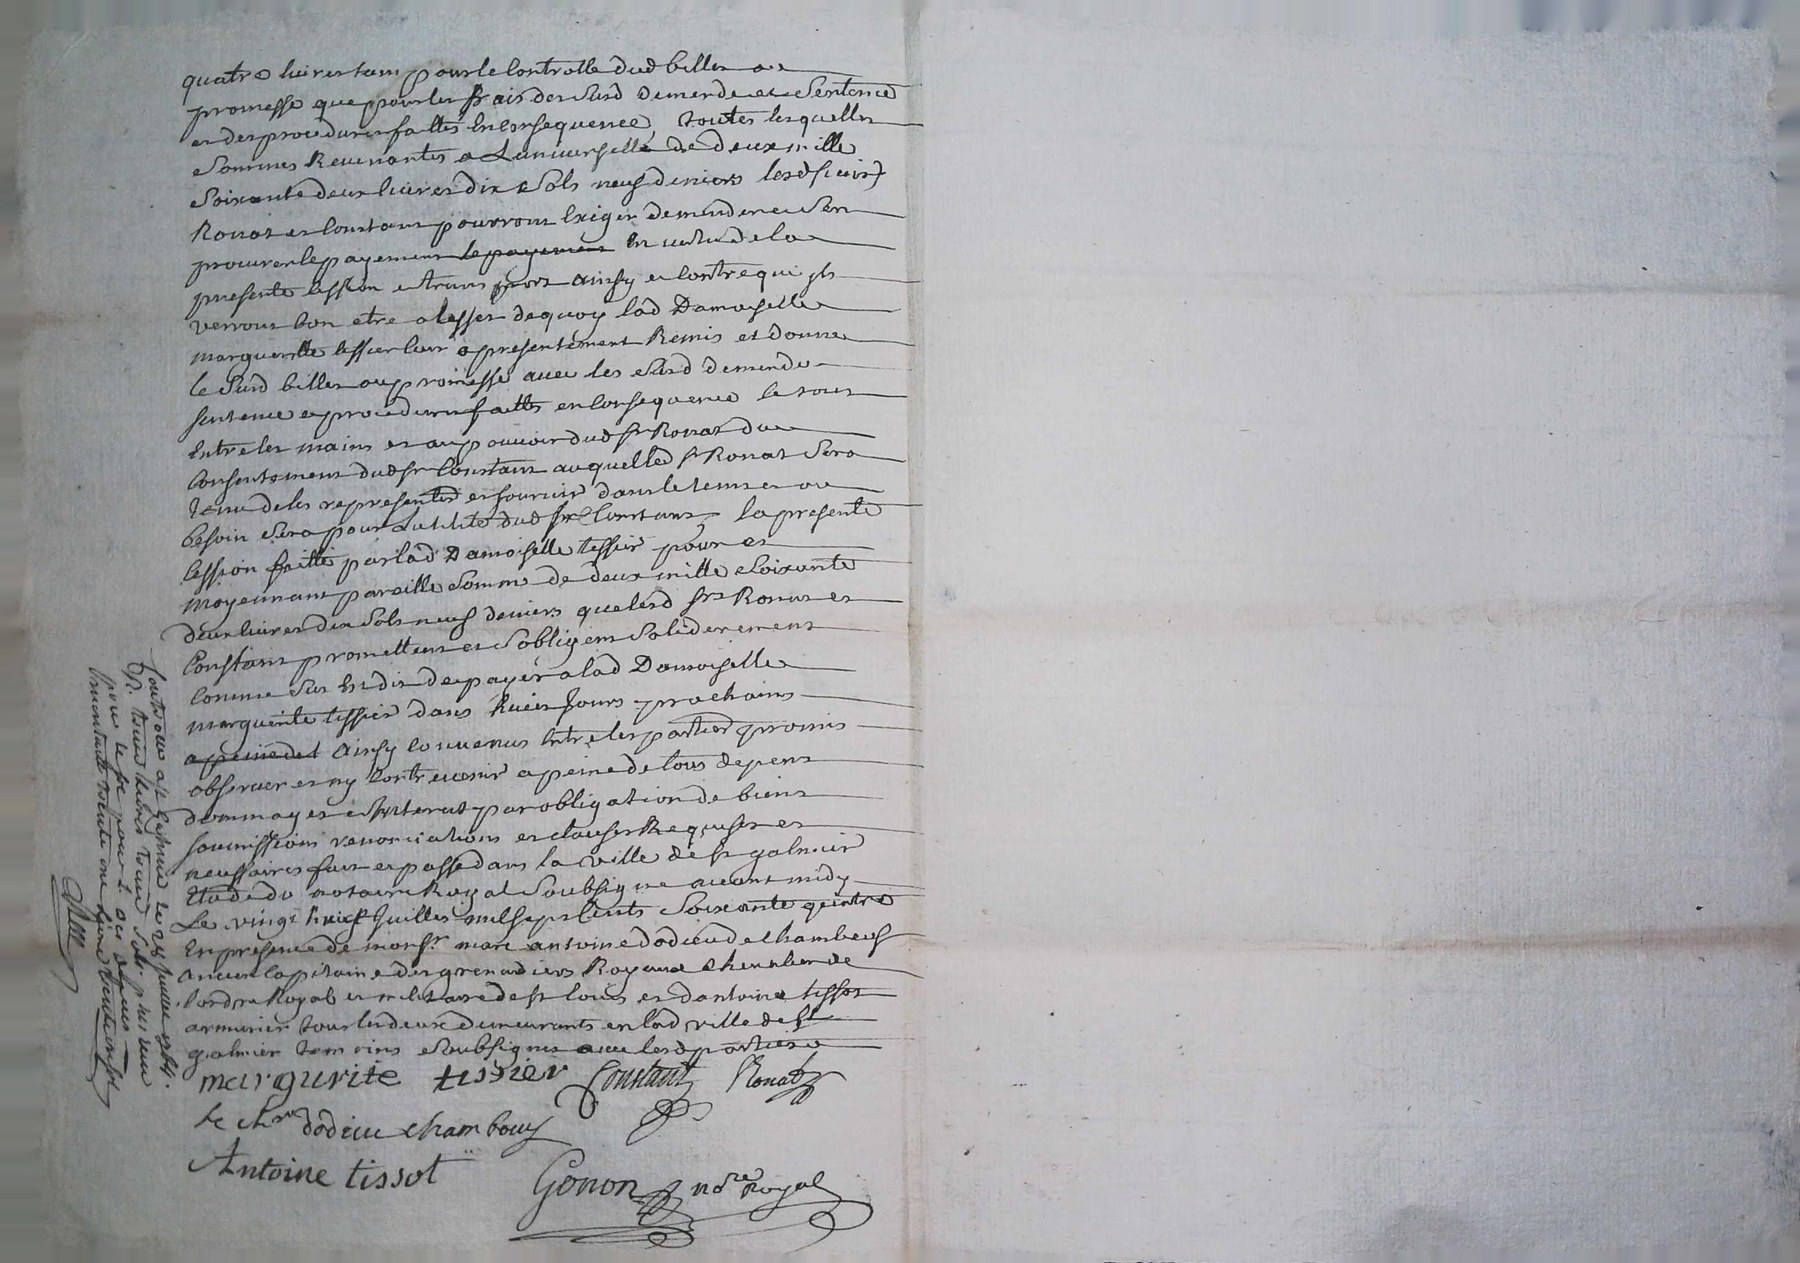 quatre livres tant pour le controlle dud billet ou
promesse que pour les frais des susd demande et sentence
et des procedures faittes en consequence, toutes lesquelles
sommes revenantes a L'universelle de deux mille
soixante deux livres dix sols neuf deniers lesd sieurs
Ronat et Constant pourront exiger demander et sen
procurer le payement le payement en vertu de la
presente cession et transport ainsy et contre qui ils
verront bon etre a l'effet de quoy lad Damoiselle
marguerite tissier leur a presentement Remis et donné
le susd billet ou promesse avec les susd demande
sentence et procedures faittes en consequence le tout
entre les mains et au pouvoir dud sr Ronat du
consentement dud sr Constant auquel led sr Ronat sera
tenu de les representer et fournir dans le tems et ou
besoin sera pour L'utilité dud sr Constant, la presente
cession faitte par lad Damoiselle tissier pour et
moyennant pareille somme de deux mille soixante
deux livres dix sols neuf deniers que lesd srs Ronat et
Constant promettent et s'obligent soliderement
comme sus est dit de payer a lad Damoiselle
marguerite tissier dans huit jours prochains
a peine de Ainsy convenus entre les parties promis
observer et ny contrevenir a peine de tous depens
dommages et interets par obligation de biens
soumissions renonciations et clauses Requises et
necessaires fait et passé dans la ville de st galmier
Etude du notaire Royal soubsigné avant midy
Le vingt huit Juillet mil sept cents soixante quatre
En presence de monsr. marc antoine dodieu de chambeuf
ancien capitaine des grenadiers Royaux chevalier de
l'ordre Royal et militaire de st louis et d'antoine tissot
armurier tous les deux demeurants en lad ville de st
galmier temoins soubsignes avec lesd parties
margurite tissier Constant Ronat
le chr dodieu chambouf
Antoine tissot Gonon nore Royal